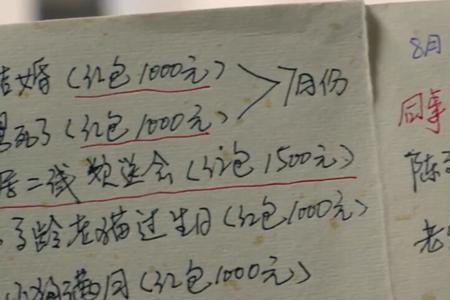 结婚（红包1000元）
死了（红包1000元）
7月份
二线 颁奖会（红包1500元）
高龄老猫过生日（红包1000元）
满月（红包1000元）
8月
同事
陈
老